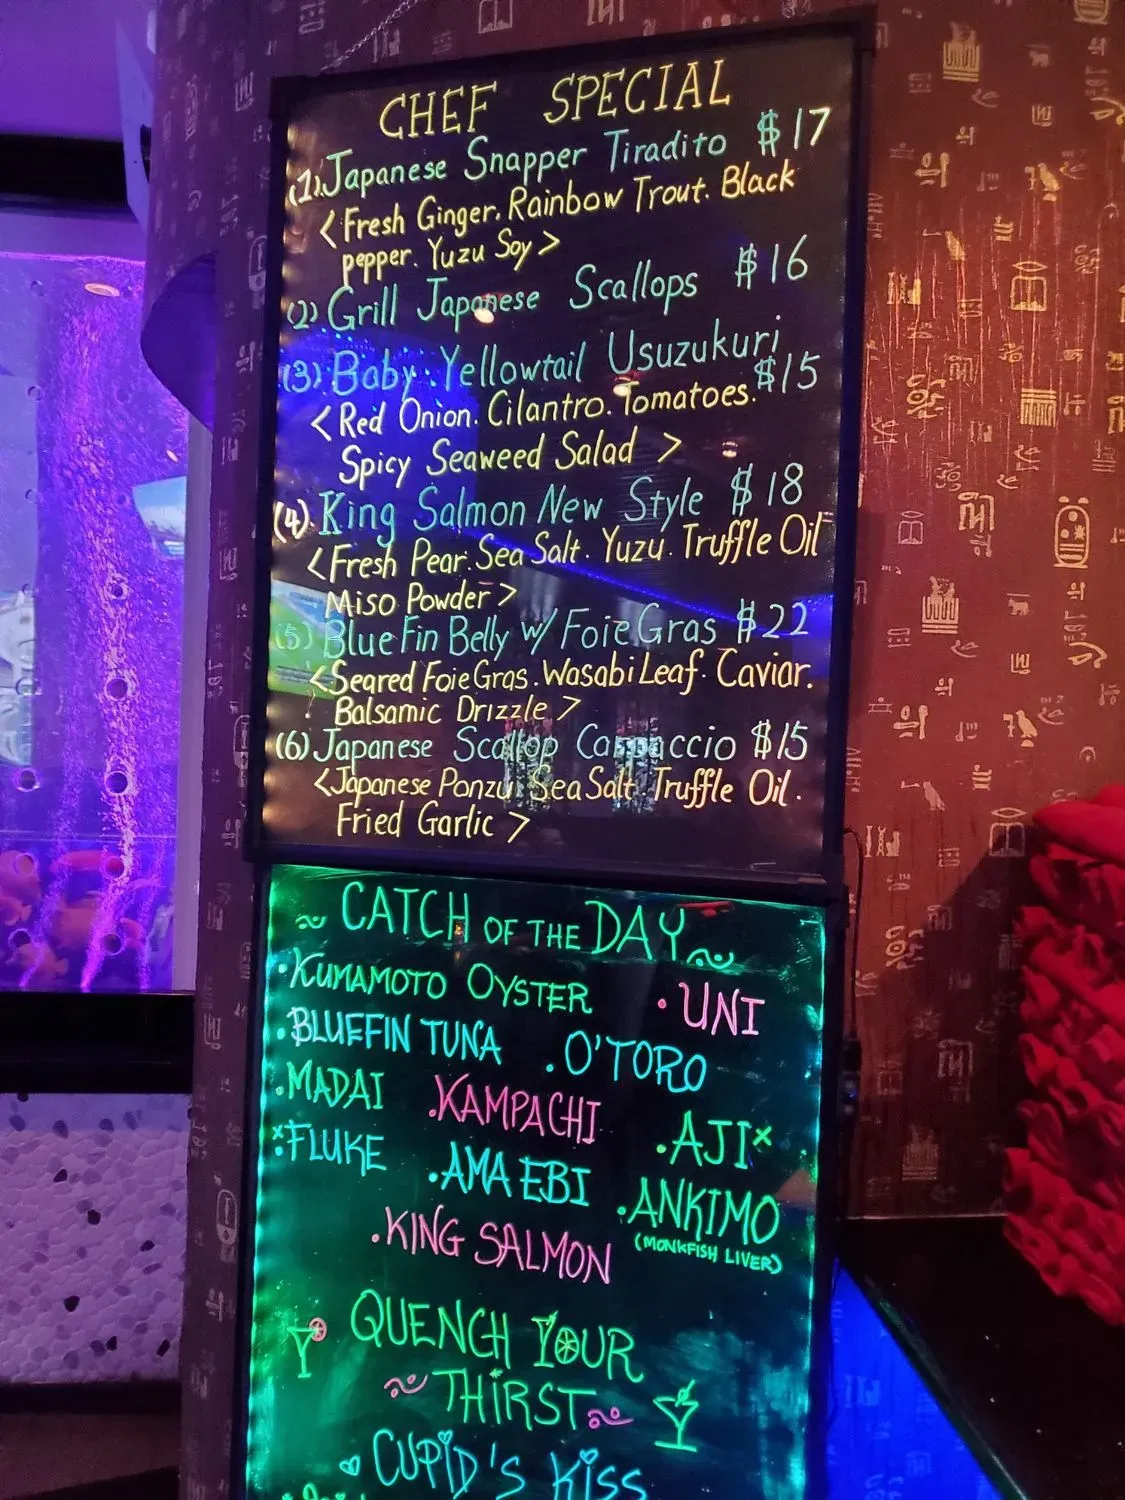 CHEF SPECIAL
(1). Japanese Snapper Tiradito $17
<Fresh Ginger. Rainbow Trout. Black
pepper. Yuzu Soy>
(2) Grill Japanese Scallops $16
(3) Baby Yellowtail Usuzukuri
$15
<Red Onion. Cilantro. Tomatoes.
Spicy Seaweed Salad >
(4). King Salmon New Style $18
<Fresh Pear. Sea Salt. Yuzu. Truffle Oil
Miso Powder>
(5) Blue Fin Belly w/ Foie Gras $22
<Seared Foie Gras. Wasabi Leaf. Caviar.
Balsamic Drizzle >
(6) Japanese Scallop Carpaccio $15
<Japanese Ponzu. Sea Salt. Truffle Oil.
Fried Garlic >
~ CATCH OF THE DAY ~
• KUMAMOTO OYSTER • UNI
• BLUEFIN TUNA • O'TORO
• MADAI • KAMPACHI • AJI*
*• FLUKE • AMA EBI • ANKIMO
(MONKFISH LIVER)
• KING SALMON
QUENCH YOUR
~ THIRST ~
CUPID'S KISS